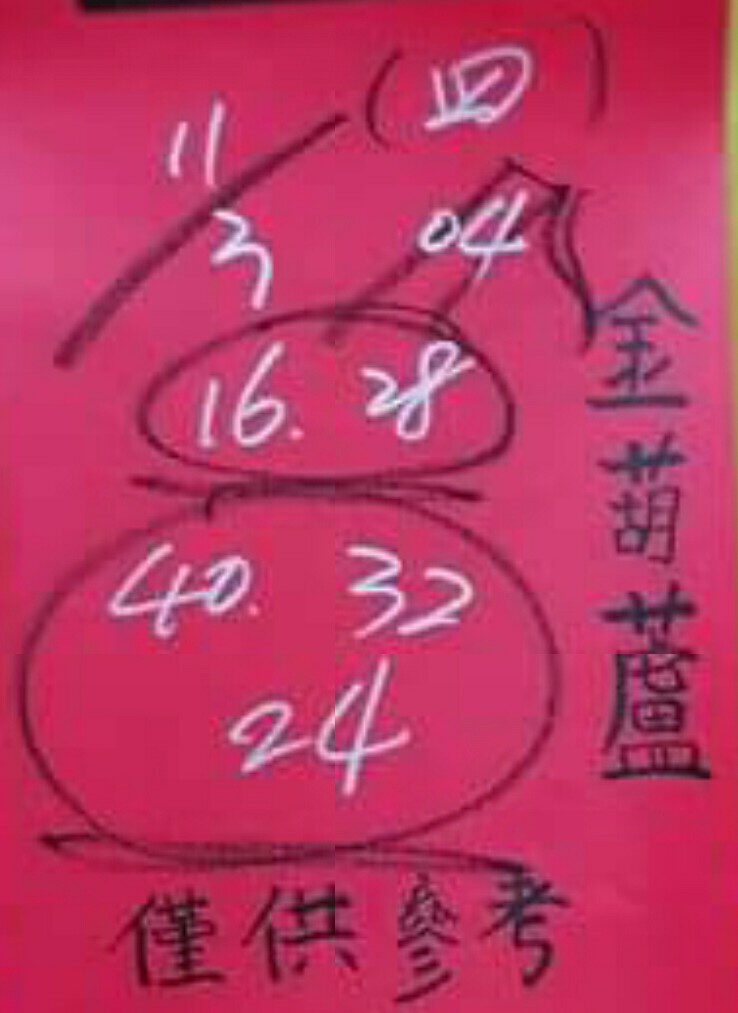 11/3 (四)
04
16. 28
40. 32
24
金葫蘆
僅供參考